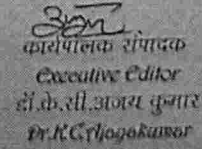 कार्यपालक संपादक
Executive Editor
डॉ.के.सी.अजय कुमार
Dr.K.C.Ajayakumar